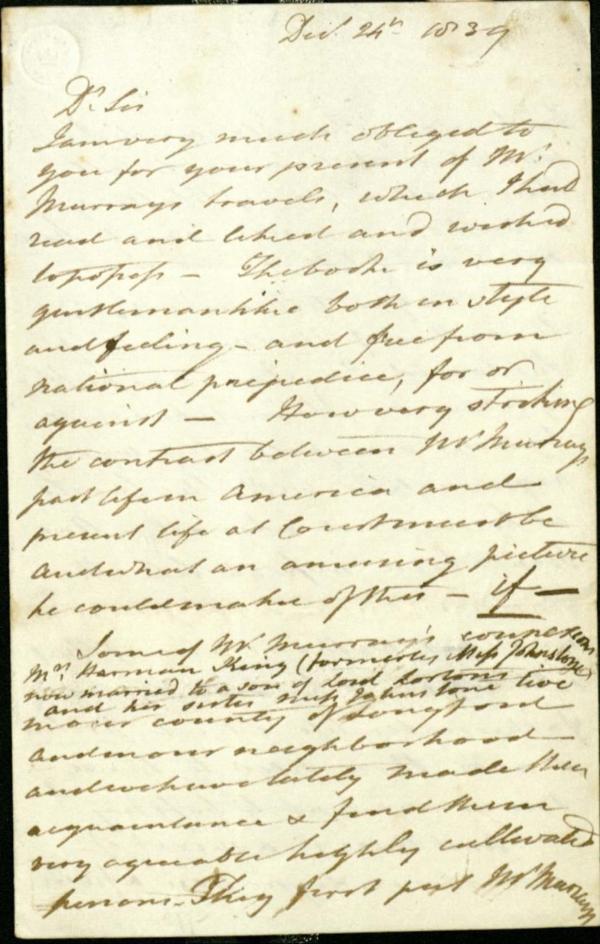 Dec. 24th 1839
Dr. Sir
I am very much obliged to
you for your present of Mr.
Murrays travels, which I had
read and liked and wished
to possess — The book is very
gentlemanlike both in style
and feeling — and free from
national prejudice, for or
against — How very striking
the contrast between Mr Murrays
past life in America and
present life at Court must be
and what an amusing picture
he could make of this — if —
Some of Mr. Murray's connexions
Mrs. Harman King (formerly Miss Johnstone)
now married to a son of Lord Lortons
and his sister Miss Johnstone live
in our county of Longford
and in our neighborhood
and we have lately made their
acquaintance & find them
very agreeable highly cultivated
persons. They first put Mr Murrays